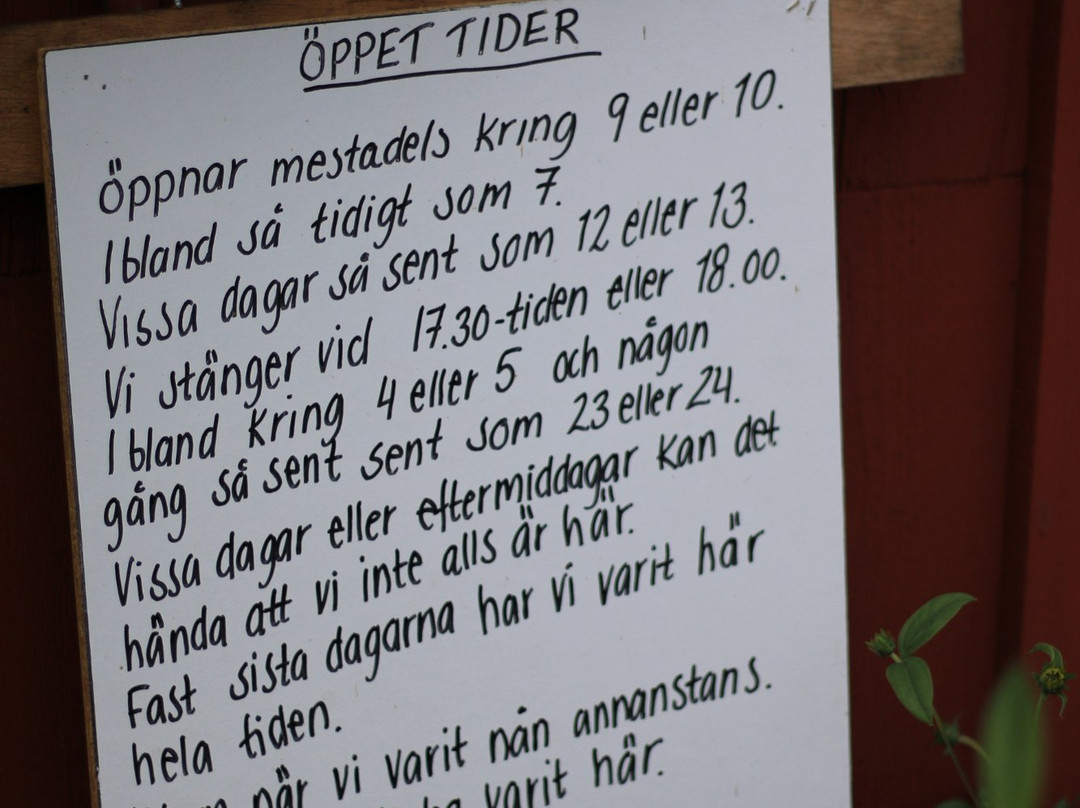 ÖPPET TIDER
Öppnar mestadels kring 9 eller 10.
Ibland så tidigt som 7.
Vissa dagar så sent som 12 eller 13.
Vi stänger vid 17.30-tiden eller 18.00.
Ibland kring 4 eller 5 och någon
gång så sent sent som 23 eller 24.
Vissa dagar eller eftermiddagar kan det
hända att vi inte alls är här.
Fast sista dagarna har vi varit här
hela tiden.
när vi varit nån annanstans.
varit här.